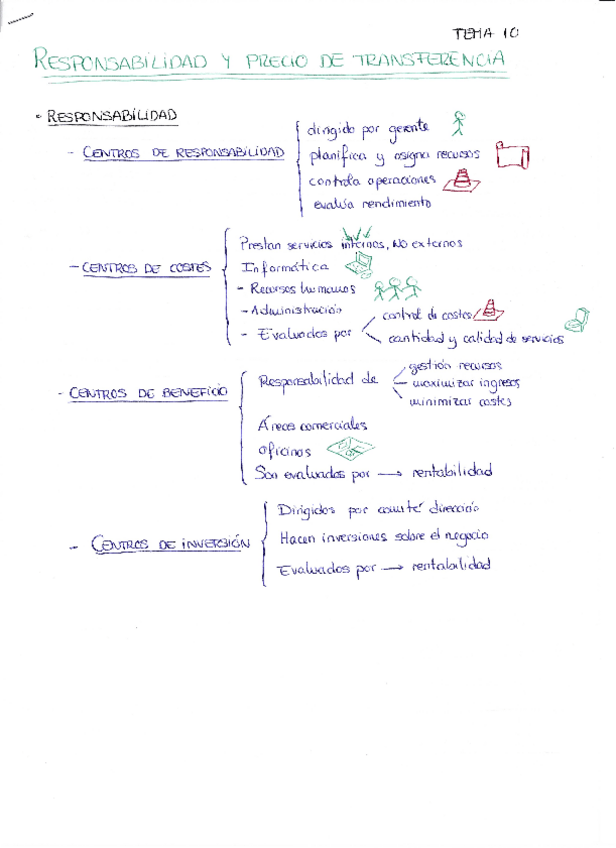 TEMA 10
RESPONSABILIDAD Y PRECIO DE TRANSFERENCIA
• RESPONSABILIDAD
- CENTROS DE RESPONSABILIDAD
dirigido por gerente
planifica y asigna recursos
controla operaciones
evalúa rendimiento
- CENTROS DE COSTES
Prestan servicios internos, NO externos
Informática
- Recursos humanos
- Administración
- Evaluados por
control de costes
cantidad y calidad de servicios
- CENTROS DE BENEFICIO
Responsabilidad de
gestión recursos
maximizar ingresos
minimizar costes
Áreas comerciales
oficinas
Son evaluados por → rentabilidad
- CENTROS DE INVERSIÓN
Dirigidos por comité dirección
Hacen inversiones sobre el negocio
Evaluados por → rentabilidad